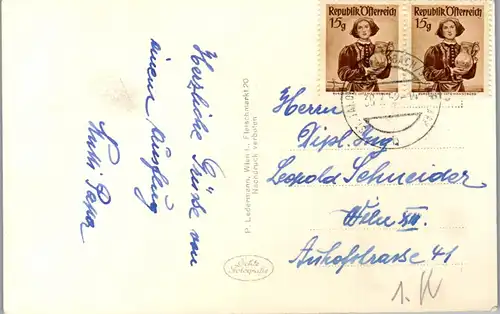 Herzliche Grüße von
einem Ausflug
Papa
P. Ledermann, Wien I., Fleischmarkt 20
Nachdruck verboten
Echte
Fotografie
Republik Österreich
15g
Republik Österreich
15g
Herrn
Dipl. Ing.
Leopold Schneider
Wien XIII.
Auhofstrasse 41